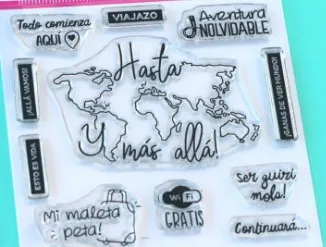 Todo comienza
AQUÍ
VIAJAZO
Aventura
INOLVIDABLE
¡ALLÁ VAMOS!
Hasta
Y más allá!
¡GANAS DE VER MUNDO!
ESTO ES VIDA
Mi maleta
peta!
Wi Fi
GRATIS
Ser guiri
mola!
Continuará...